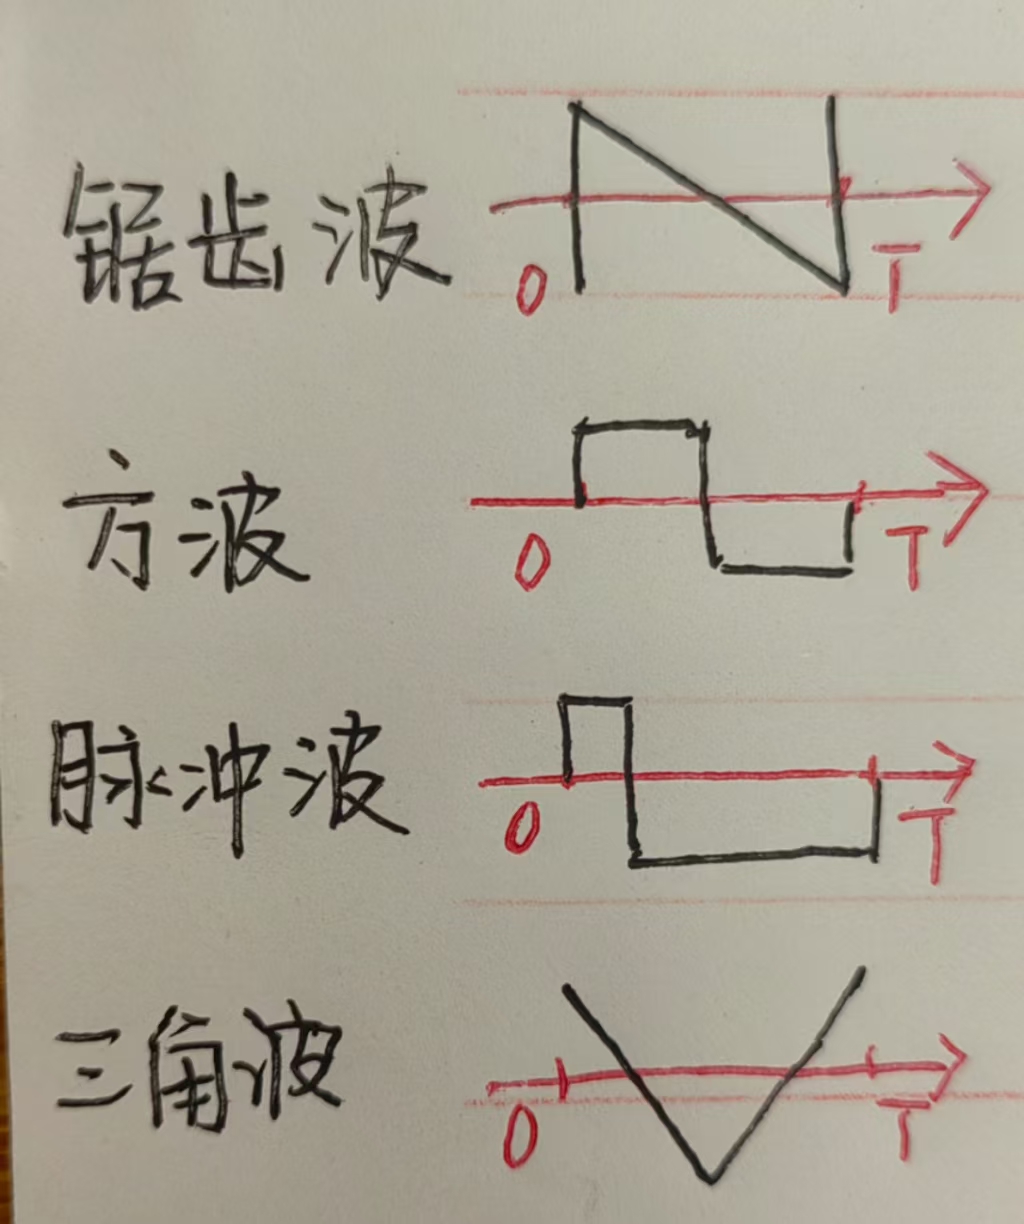 锯齿波
0 T
方波
0 T
脉冲波
0 T
三角波
0 T